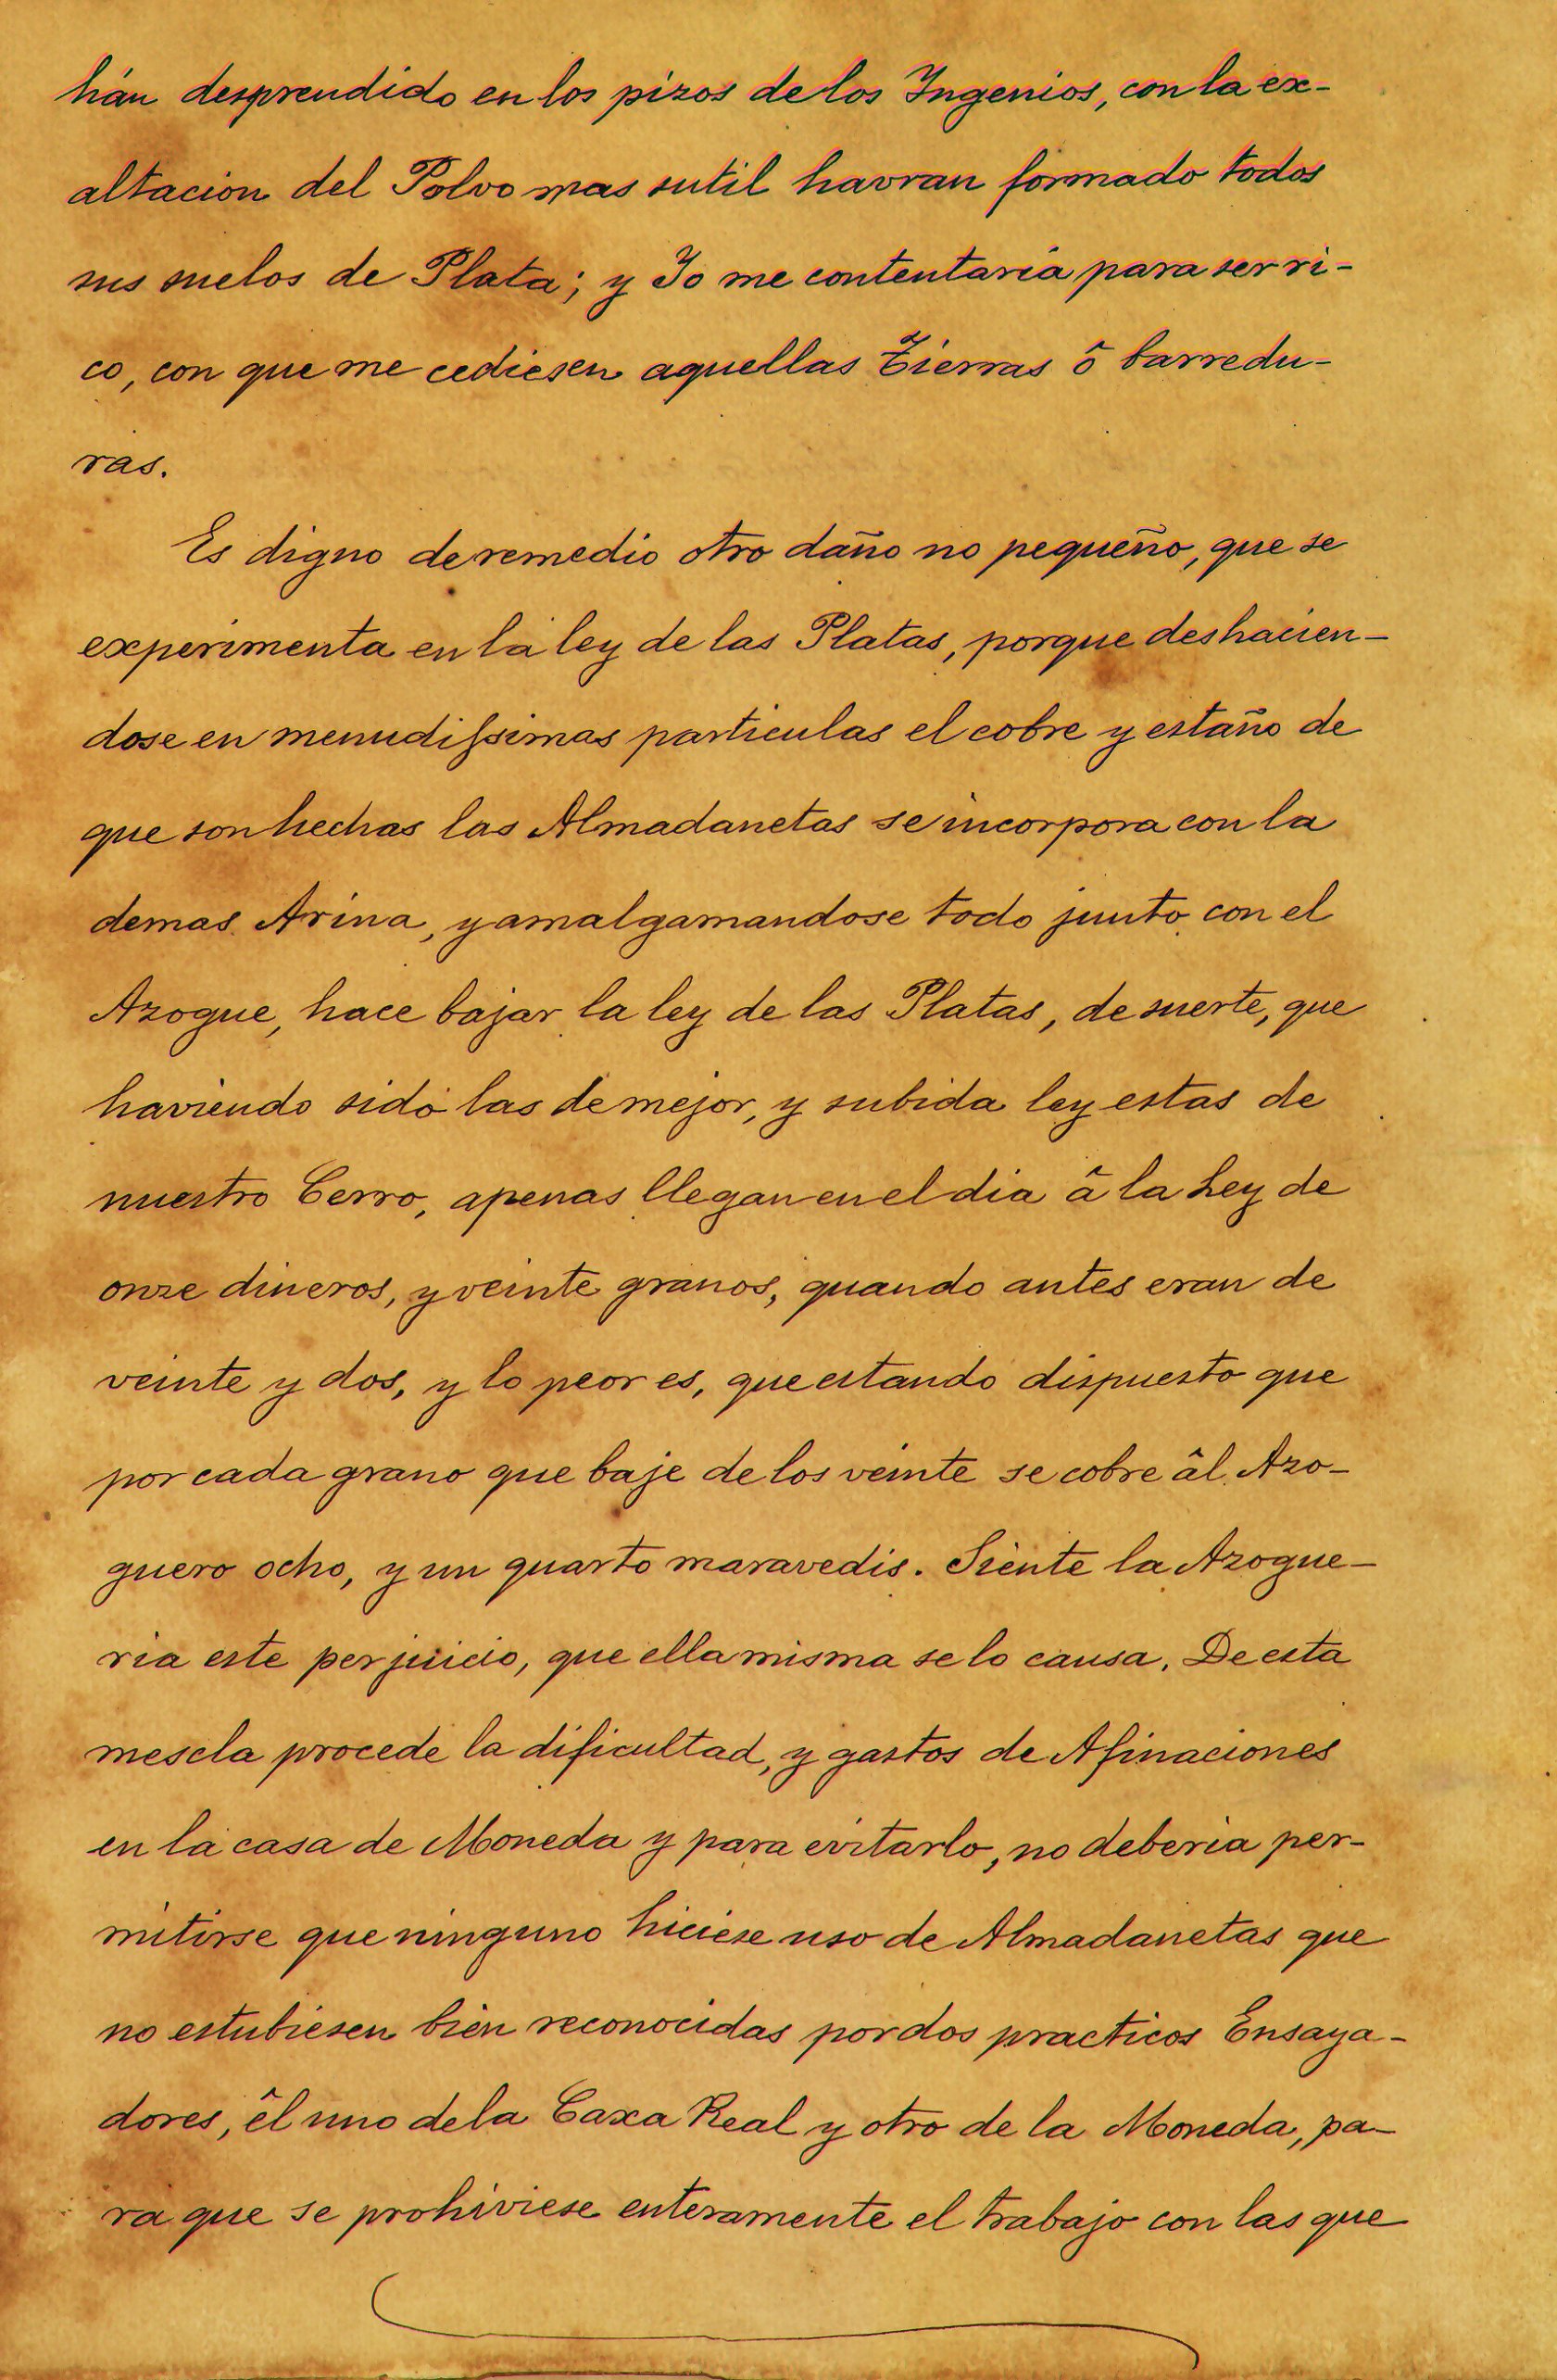 hán desprendido en los pizos de los Ingenios, con la ex-
altacion del Polvo mas sutil havran formado todos
sus suelos de Plata; y Yo me contentaria para ser ri-
co, con que me cediesen aquellas Tierras ô barredu-
ras.
Es digno de remedio otro daño no pequeño, que se
experimenta en la ley de las Platas, porque deshacien-
dose en menudissimas particulas el cobre y estaño de
que son hechas las Almadanetas se incorpora con la
demas Arina, y amalgamandose todo junto con el
Azogue, hace bajar la ley de las Platas, de suerte, que
haviendo sido las de mejor, y subida ley estas de
nuestro Cerro, apenas llegan en el dia â la Ley de
onze dineros, y veinte granos, quando antes eran de
veinte y dos, y lo peor es, que estando dispuesto que
por cada grano que baje de los veinte se cobre âl Azo-
guero ocho, y un quarto maravedis. Siente la Azogue-
ria este perjuicio, que ella misma se lo causa. De esta
mescla procede la dificultad, y gastos de Afinaciones
en la casa de Moneda y para evitarlo, no deberia per-
mitirse que ninguno hiciese uso de Almadanetas que
no estubiesen bien reconocidas por dos practicos Ensaya-
dores, êl uno de la Caxa Real y otro de la Moneda, pa-
ra que se prohiviese enteramente el trabajo con las que